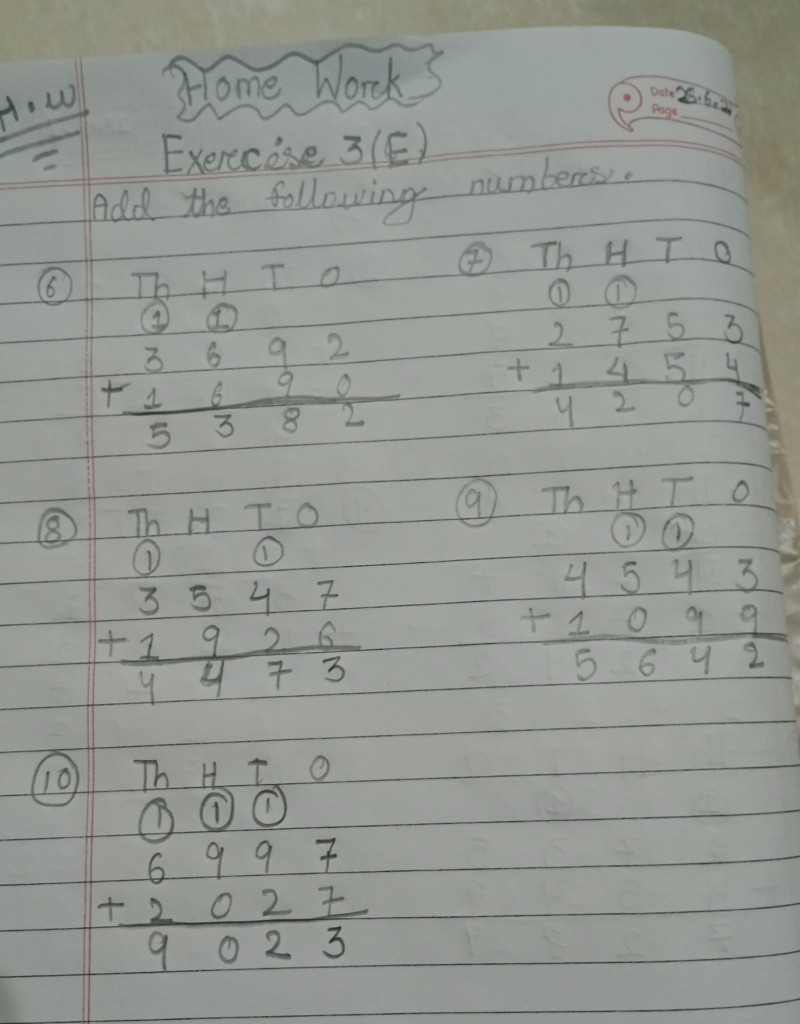 H.W
Home Work
Date 28.6.2
Page
Exercise 3(E)
Add the following numbers.
6 Th H T O
1 1
3 6 9 2
+ 1 6 9 0
5 3 8 2
7 Th H T O
1 1
2 7 5 3
+ 1 4 5 4
4 2 0 7
8 Th H T O
1 1
3 5 4 7
+ 1 9 2 6
4 4 7 3
9 Th H T O
1 1
4 5 4 3
+ 1 0 9 9
5 6 4 2
10 Th H T O
1 1 1
6 9 9 7
+ 2 0 2 7
9 0 2 3